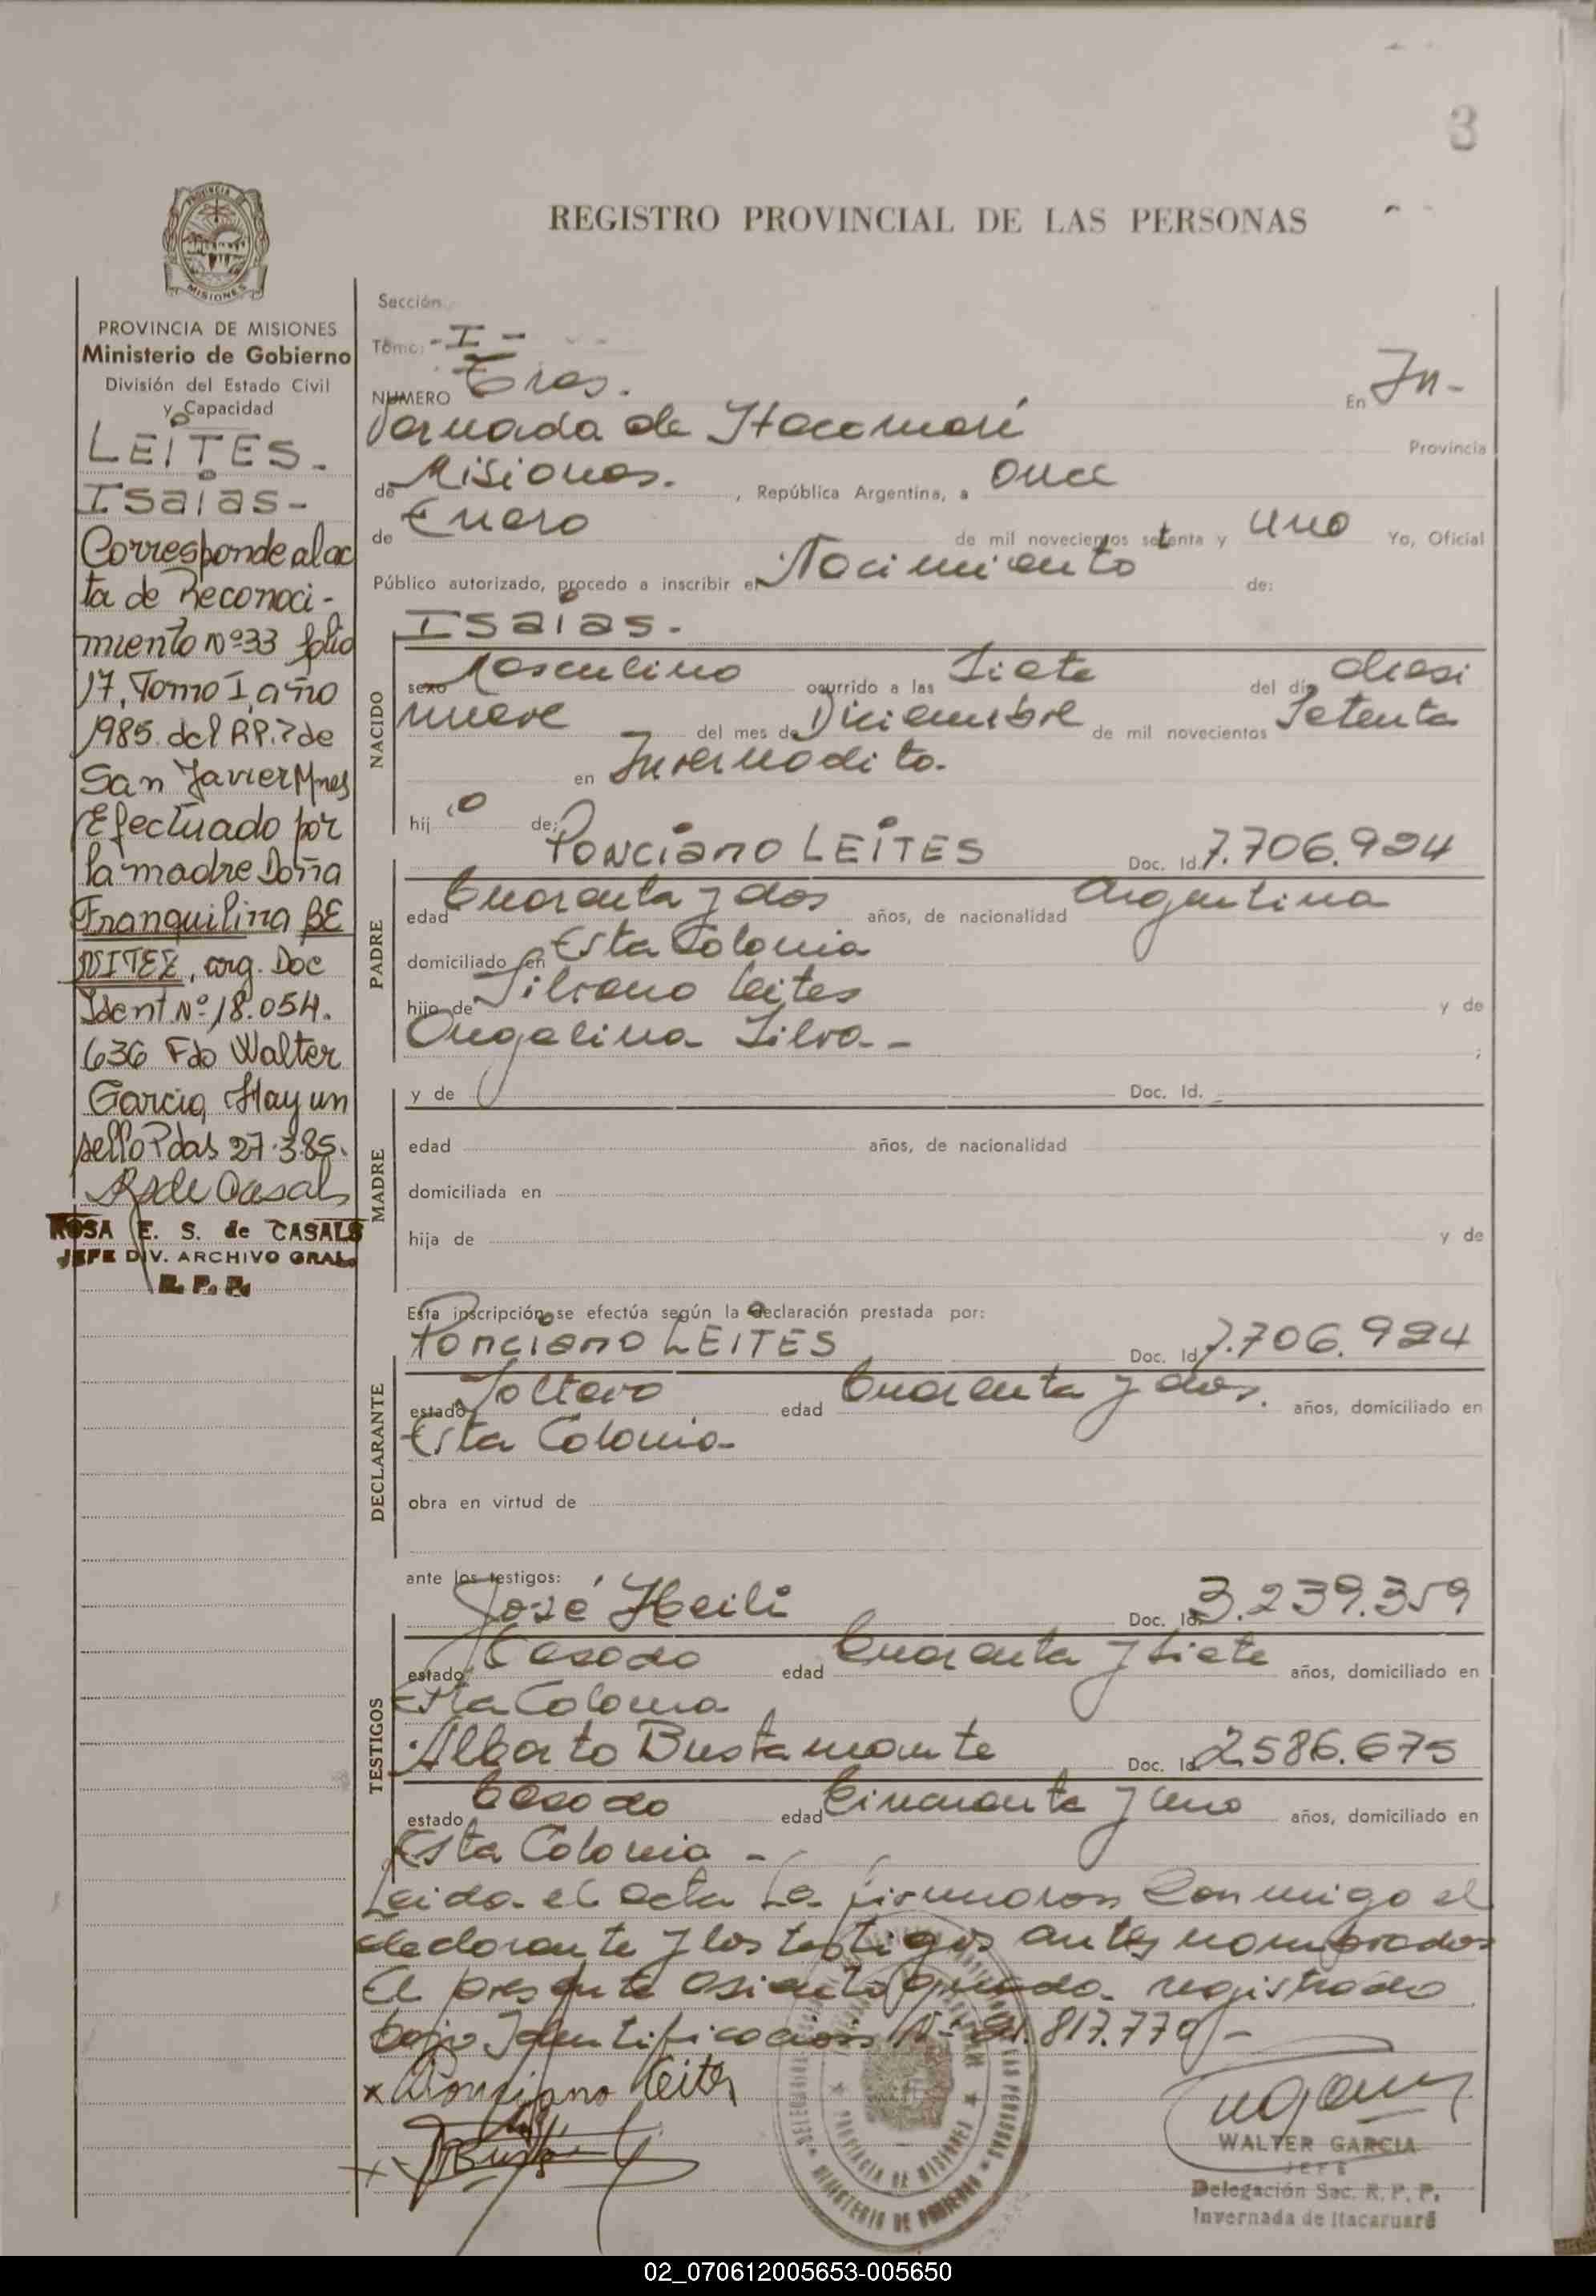 3
REGISTRO PROVINCIAL DE LAS PERSONAS
PROVINCIA
MISIONES
PROVINCIA DE MISIONES
Ministerio de Gobierno
División del Estado Civil
y Capacidad
LEITES.-
Isaias-
Corresponde al ac
ta de Reconoci-
miento Nº33 folio
17, Tomo I, año
1985. del R.P.P de
San Javier Mnes
Efectuado por
la madre Doña
Tranquilina BE
NITEZ, arg. Doc
Ident Nº 18.054.
636 Fdo Walter
Garcia, Hay un
sello Pdas 27.3.85.
ROSA E. S. de CASALS
JEFE DIV. ARCHIVO GRAL.
R. P. P.
Sección
Tomo: - I -
NUMERO Tres. En In-
vernada de Itacaruaré Provincia
de Misiones. , República Argentina, a once
de Enero de mil novecientos setenta y uno Yo, Oficial
Público autorizado, procedo a inscribir el Nacimiento de:
Isaias.-
NACIDO
sexo Masculino ocurrido a las Siete del día dieci
nueve del mes de Diciembre de mil novecientos Setenta
en Invernadita.
hij o de:
PADRE
Ponciano LEITES Doc. Id. 7.706.924
edad Cuarenta y dos años, de nacionalidad Argentina
domiciliado en Esta Colonia
hijo de Silvano Leites y de
Angelina Silva.- ;
MADRE
y de Doc. Id.
edad años, de nacionalidad
domiciliada en
hija de y de
Esta inscripción se efectúa según la declaración prestada por:
DECLARANTE
Ponciano LEITES Doc. Id 7.706.924
estado Soltero edad Cuarenta y dos. años, domiciliado en
Esta Colonia-
obra en virtud de
ante los testigos:
TESTIGOS
José Heili Doc. Id. 3.239.359
estado Casado edad Cuarenta y Siete años, domiciliado en
Esta Colonia
Alberto Bustamante Doc. Id. 2586.675
estado Casado edad Cincuenta y uno años, domiciliado en
Esta Colonia -
Leida el acta la firmaron Conmigo el
declarante y los testigos antes nombrados
El presente asiento queda registrado
bajo Identificación Nº 21.817.770-
x Ponciano Leites
PROVINCIA DE MISIONES
MINISTERIO DE GOBIERNO
WALTER GARCIA
JEFE
Delegación Sec. R. P. P.
Invernada de Itacaruaré
02_070612005653-005650